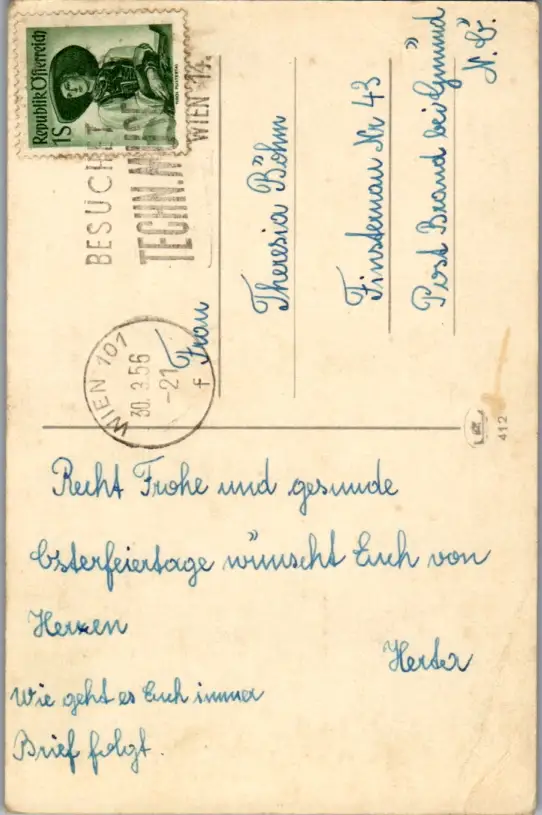 Republik Österreich
1S
BESUCHET
TECHN. MUSE
WIEN 14.
WIEN 101
30. 3. 56
-21
f
Frau
Theresia Böhm
Finsternau Nr 43
Post Brand bei Gmünd
N.Ö.
412
Recht Frohe und gesunde
Osterfeiertage wünscht Euch von
Herzen
Herta
Wie geht es Euch immer
Brief folgt.